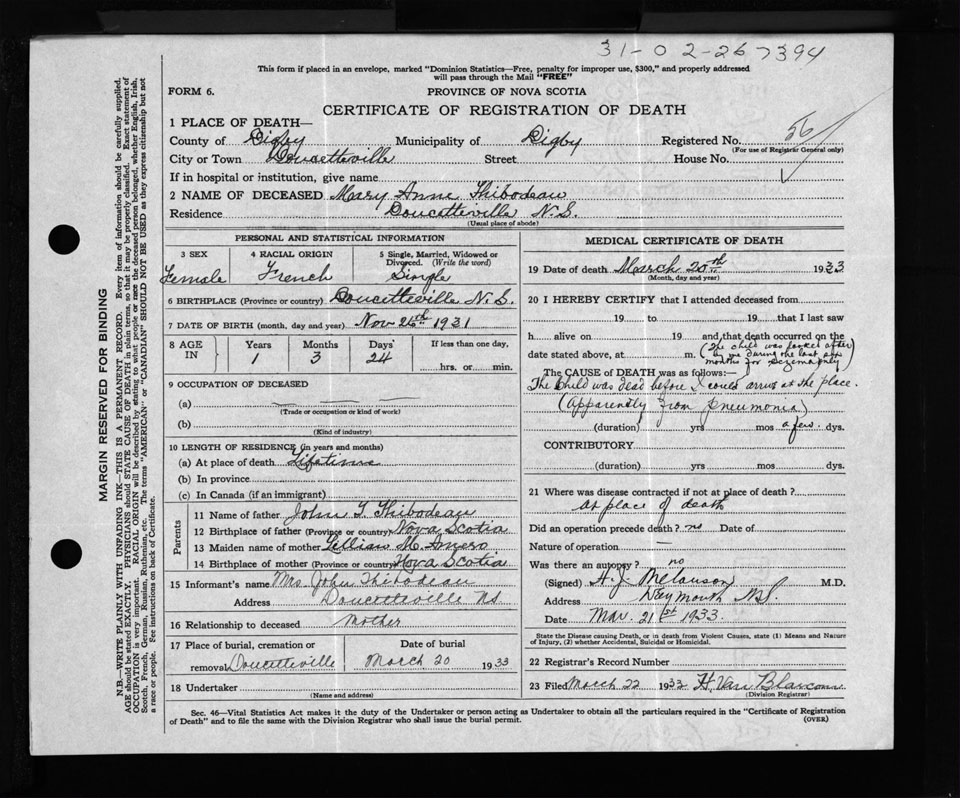 31-02-267394
This form if placed in an envelope, marked "Dominion Statistics—Free, penalty for improper use, $300," and properly addressed
will pass through the Mail "FREE"
FORM 6.
PROVINCE OF NOVA SCOTIA
CERTIFICATE OF REGISTRATION OF DEATH
1 PLACE OF DEATH—
County of Digby Municipality of Digby Registered No. 56
(For use of Registrar General only)
City or Town Doucetteville Street House No.
If in hospital or institution, give name
2 NAME OF DECEASED Mary Anne Thibodeau
Residence Doucetteville N.S.
(Usual place of abode)
PERSONAL AND STATISTICAL INFORMATION
3 SEX 4 RACIAL ORIGIN 5 Single, Married, Widowed or
Divorced. (Write the word)
Female French Single
6 BIRTHPLACE (Province or country) Doucetteville N.S.
7 DATE OF BIRTH (month, day and year) Nov 26th 1931
8 AGE IN Years Months Days If less than one day,
1 3 24 hrs. or min.
9 OCCUPATION OF DECEASED
(a) —
(Trade or occupation or kind of work)
(b)
(Kind of industry)
10 LENGTH OF RESIDENCE (in years and months)
(a) At place of death Lifetime
(b) In province
(c) In Canada (if an immigrant)
Parents
11 Name of father John T. Thibodeau
12 Birthplace of father (Province or country) Nova Scotia
13 Maiden name of mother Lillian M.
14 Birthplace of mother (Province or country) Nova Scotia
15 Informant's name Mrs John Thibodeau
Address Doucetteville NS
16 Relationship to deceased Mother
17 Place of burial, cremation or Date of burial
removal Doucetteville March 20 1933
18 Undertaker
(Name and address)
MEDICAL CERTIFICATE OF DEATH
19 Date of death March 20th 1933
(Month, day and year)
20 I HEREBY CERTIFY that I attended deceased from
19 to 19 that I last saw
h alive on 19 and that death occurred on the
date stated above, at m. (The child was looked after
by me during the last
months for Eczema only)
The CAUSE OF DEATH was as follows:—
The Child was dead before I could arrive at the place.
(apparently from pneumonia)
(duration) yrs mos a few dys.
CONTRIBUTORY
(duration) yrs mos dys.
21 Where was disease contracted if not at place of death?
At place of death
Did an operation precede death? no Date of
Nature of operation —
Was there an autopsy? no
(Signed) H. J. Melanson M.D.
Address Weymouth N.S.
Date Mar. 21st 1933
State the Disease causing Death, or in death from Violent Causes, state (1) Means and Nature
of Injury, (2) whether Accidental, Suicidal or Homicidal.
22 Registrar's Record Number
23 Filed March 22 1933 H. Van Blarcom
(Division Registrar)
Sec. 46—Vital Statistics Act makes it the duty of the Undertaker or person acting as Undertaker to obtain all the particulars required in the "Certificate of Registration
of Death" and to file the same with the Division Registrar who shall issue the burial permit. (OVER)
MARGIN RESERVED FOR BINDING
N.B.—WRITE PLAINLY WITH UNFADING INK—THIS IS A PERMANENT RECORD. Every item of information should be carefully supplied.
AGE should be stated EXACTLY. PHYSICIANS should STATE CAUSE OF DEATH in plain terms, so that it may be properly classified. Exact statement of
OCCUPATION is very important. RACIAL ORIGIN will be described by stating to what people or race the deceased person belonged, whether English, Irish,
Scotch, French, German, Russian, Ruthenian, etc. The terms "AMERICAN" or "CANADIAN" SHOULD NOT BE USED as they express citizenship but not
a race or people. See instructions on back of Certificate.